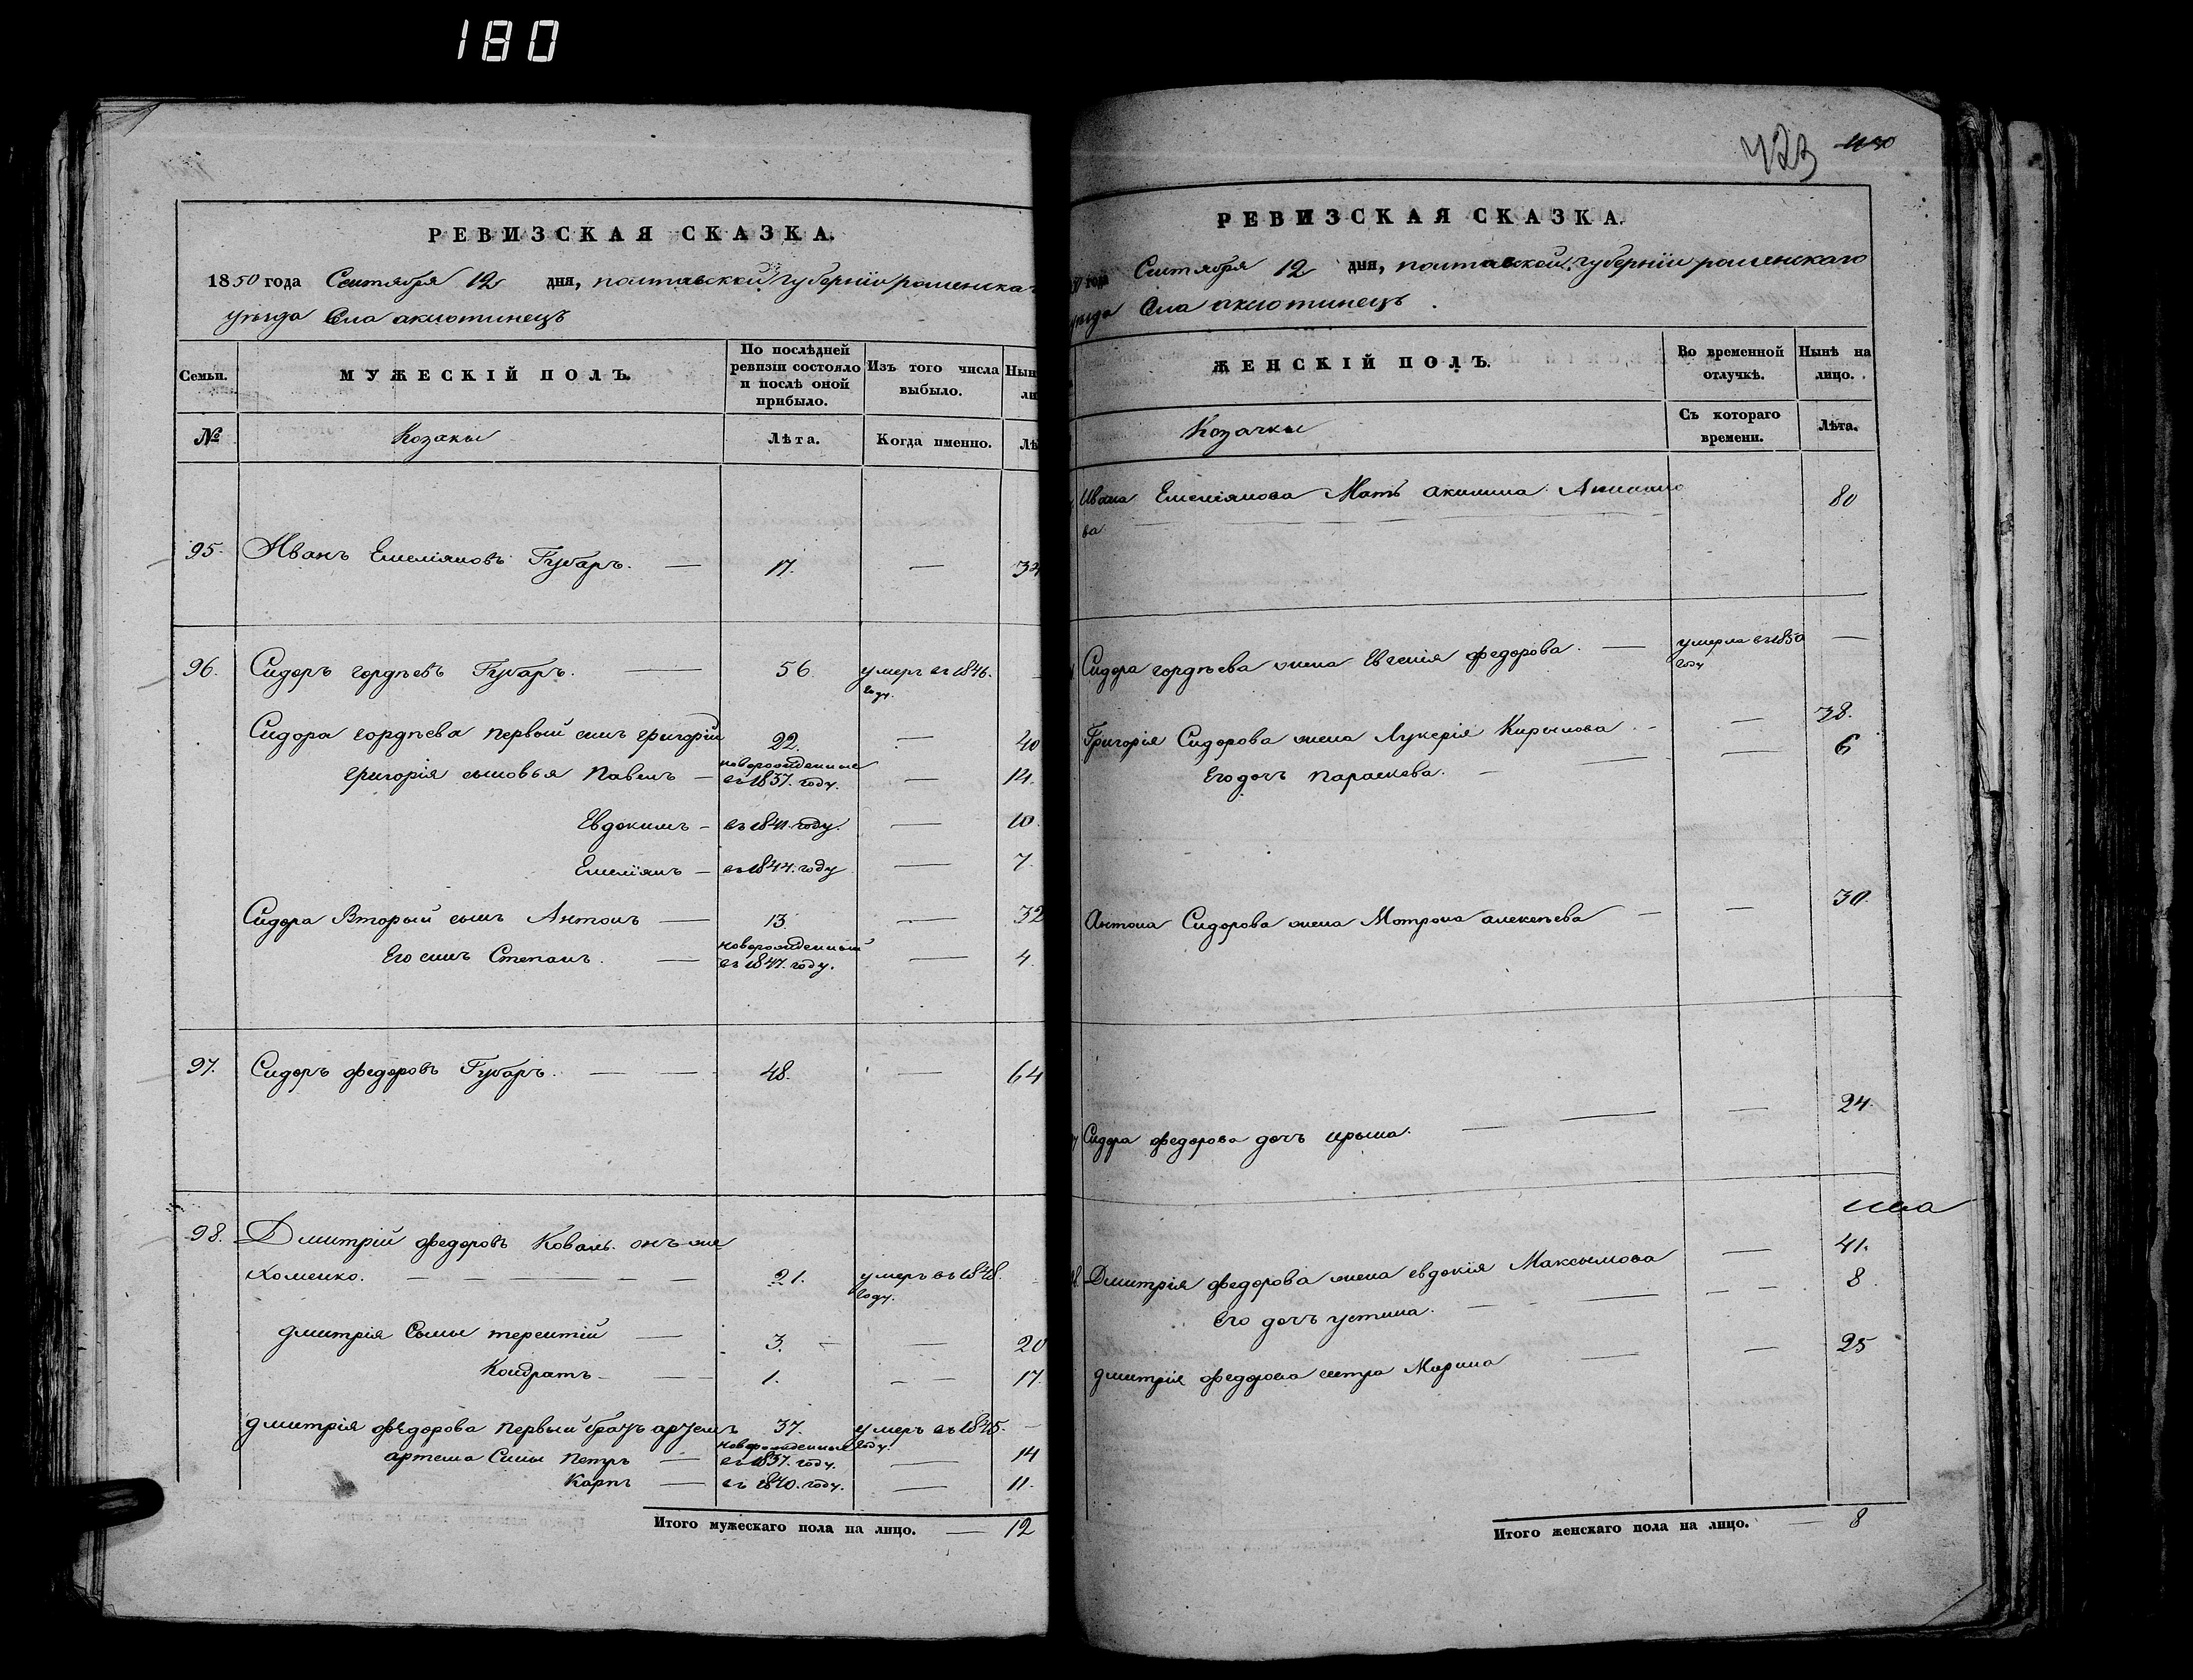 180
423
РЕВИЗСКАЯ СКАЗКА.
1850 года Сентября 12 дня, полтавской губерніи роменска
уезда Села аксютинецъ
Семьи.
МУЖЕСКІЙ ПОЛЪ.
По послѣдней ревизіи состояло и послѣ оной прибыло.
Изъ того числа выбыло.
Нын
ли
№
Козаки
Лѣта.
Когда именно.
Лѣ
95. Иванъ Емеліяновъ Губаръ. — 17. — 34
96. Сидоръ гордѣевъ Губаръ. — 56. умеръ въ 1846.
году.
Сидора гордѣева первый сынъ григорій 22. — 40
новорожденные
григорія сыновья Павелъ — въ 1837. году. — 14.
Евдокимъ — въ 1841. году. — 10.
Емеліянъ — въ 1844. году — 7.
Сидора Вторый сынъ Антонъ — 13. — 32
новорожденный
Его сынъ Степанъ. — въ 1847. году. — 4.
97. Сидоръ федоровъ Губаръ. — — 48. — 64
98. Дмитрій федоровъ Коваль. онъ же
Хоменко. — — — — — 21. умеръ въ 1848.
году.
дмитрія Сыны терентій — 3. — — 20
Кондратъ — — 1. — — 17.
дмитрія федорова первый братъ артемъ 37. умеръ въ 1845. —
новорожденные году.
артема Сыны Петръ — въ 1837. году. — 14
Карпъ — въ 1840. году. — 11.
Итого мужескаго пола на лицо. — 12
РЕВИЗСКАЯ СКАЗКА.
года Сентября 12 дня, полтавской губерніи роменскаго
уезда Села аксютинецъ.
ЖЕНСКІЙ ПОЛЪ.
Во временной отлучкѣ.
Нынѣ на лицо.
Козачки
Съ котораго времени.
Лѣта.
Ивана Емеліянова Мать акилина 80
ва
Сидора гордѣева жена Евгенія федорова. — умерла въ 1850 —
году
Григорія Сидорова жена Лукерія Кирилова — — 38.
Его дочь параскева. — — — 6
Антона Сидорова жена Мотрона алексѣева — — 30.
Сидора федорова дочь ирына. — — — 24.
Дмитрія федорова жена евдокія Максымова — 41.
Его дочь устина. — — — — 8.
дмитрія федорова сестра Марина — — 25
Итого женскаго пола на лицо. — 8